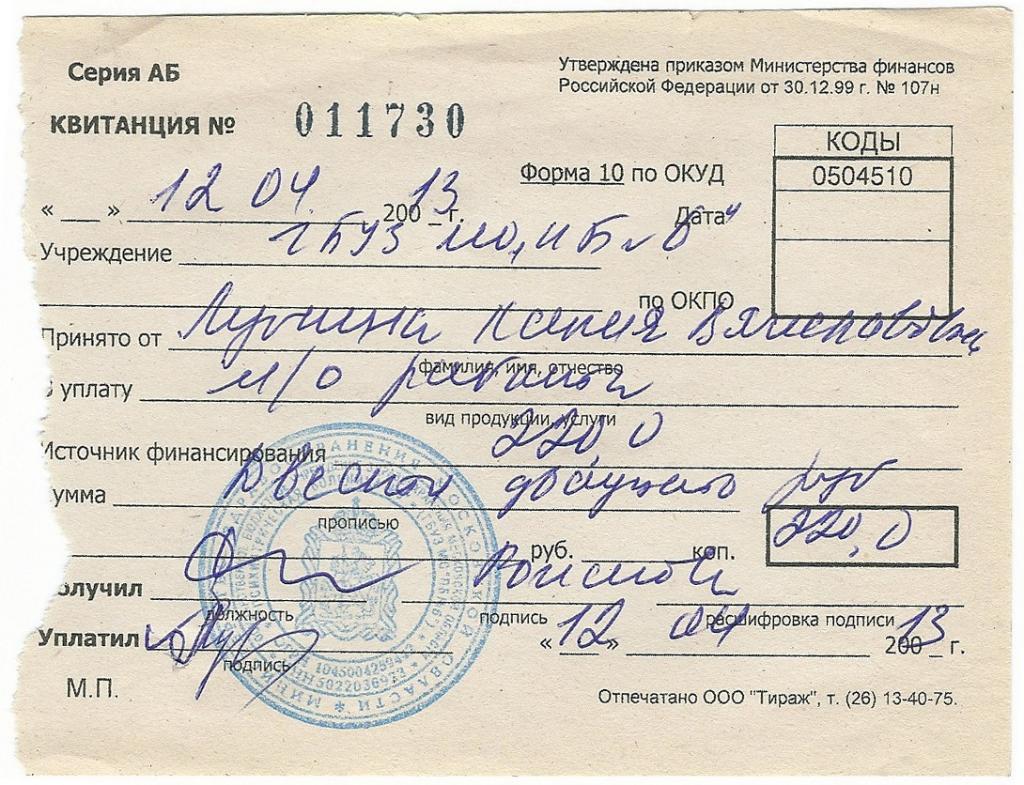 Серия АБ
Утверждена приказом Министерства финансов
Российской Федерации от 30.12.99 г. № 107н
КВИТАНЦИЯ № 011730
КОДЫ
Форма 10 по ОКУД 0504510
« __ » 12 04. 200 13 г. Дата
Учреждение ГБУЗ МО
по ОКПО
Принято от Ксения Вячеславовна
фамилия, имя, отчество
уплату м/о
вид продукции, услуги
Источник финансирования 220,0
умма Двести двадцать руб
прописью
руб. коп. 220,0
олучил
должность подпись расшифровка подписи
Уплатил « 12 » 04 200 13 г.
подпись
М.П.
Отпечатано ООО "Тираж", т. (26) 13-40-75.